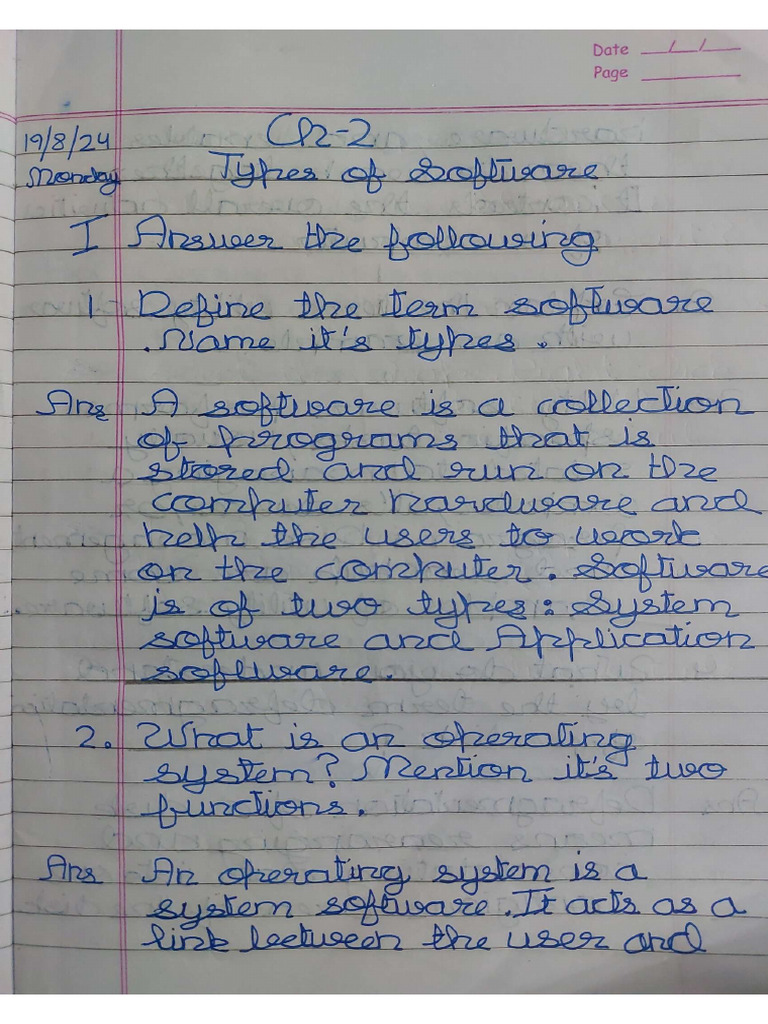 Date __/__/__
Page ______
19/8/24
Monday
Ch-2
Types of Software
I Answer the following
1 Define the term software
. Name it's types .
Ans A software is a collection
of programs that is
stored and run on the
computer hardware and
help the users to work
on the computer. Software
is of two types: System
software and Application
software.
2. What is an operating
system? Mention it's two
functions.
Ans An operating system is a
system software. It acts as a
link between the user and